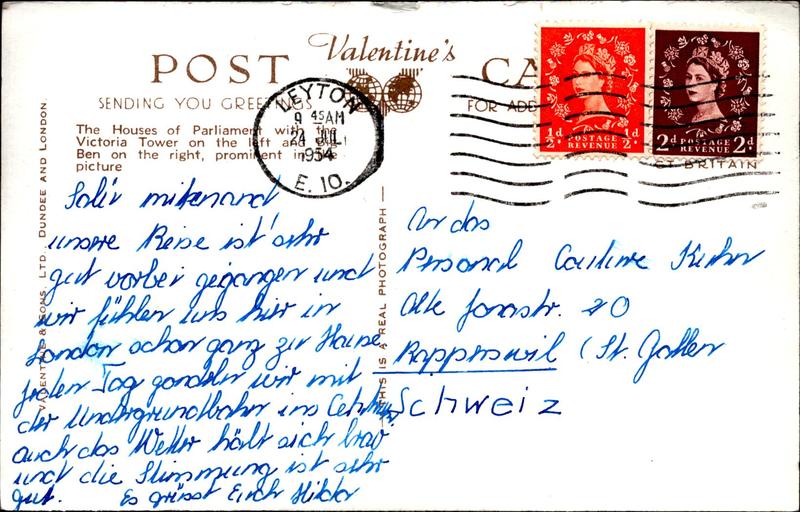 POST Valentine's CA
SENDING YOU GREETINGS
FOR ADD
The Houses of Parliament with the
Victoria Tower on the left and Big
Ben on the right, prominent in the
picture
VALENTINE & SONS, LTD. DUNDEE AND LONDON.
THIS IS A REAL PHOTOGRAPH
LEYTON
9 45 AM
JUL
1954
E. 10.
½d POSTAGE REVENUE ½d
2d POSTAGE REVENUE 2d
BRITAIN
Salü mitenand!
unsre Reise ist sehr
gut vorbei gegangen und
wir fühlen uns hier in
London schon ganz zu Hause
jeden Tag gondeln wir mit
der Undergrundbahn ins
auch das Wetter hält sich brav
und die Stimmung ist sehr
gut. Es grüsst Euch
An das
Personal Kuhn
Alte Jonastr. 20
Rapperswil (St. Gallen
Schweiz